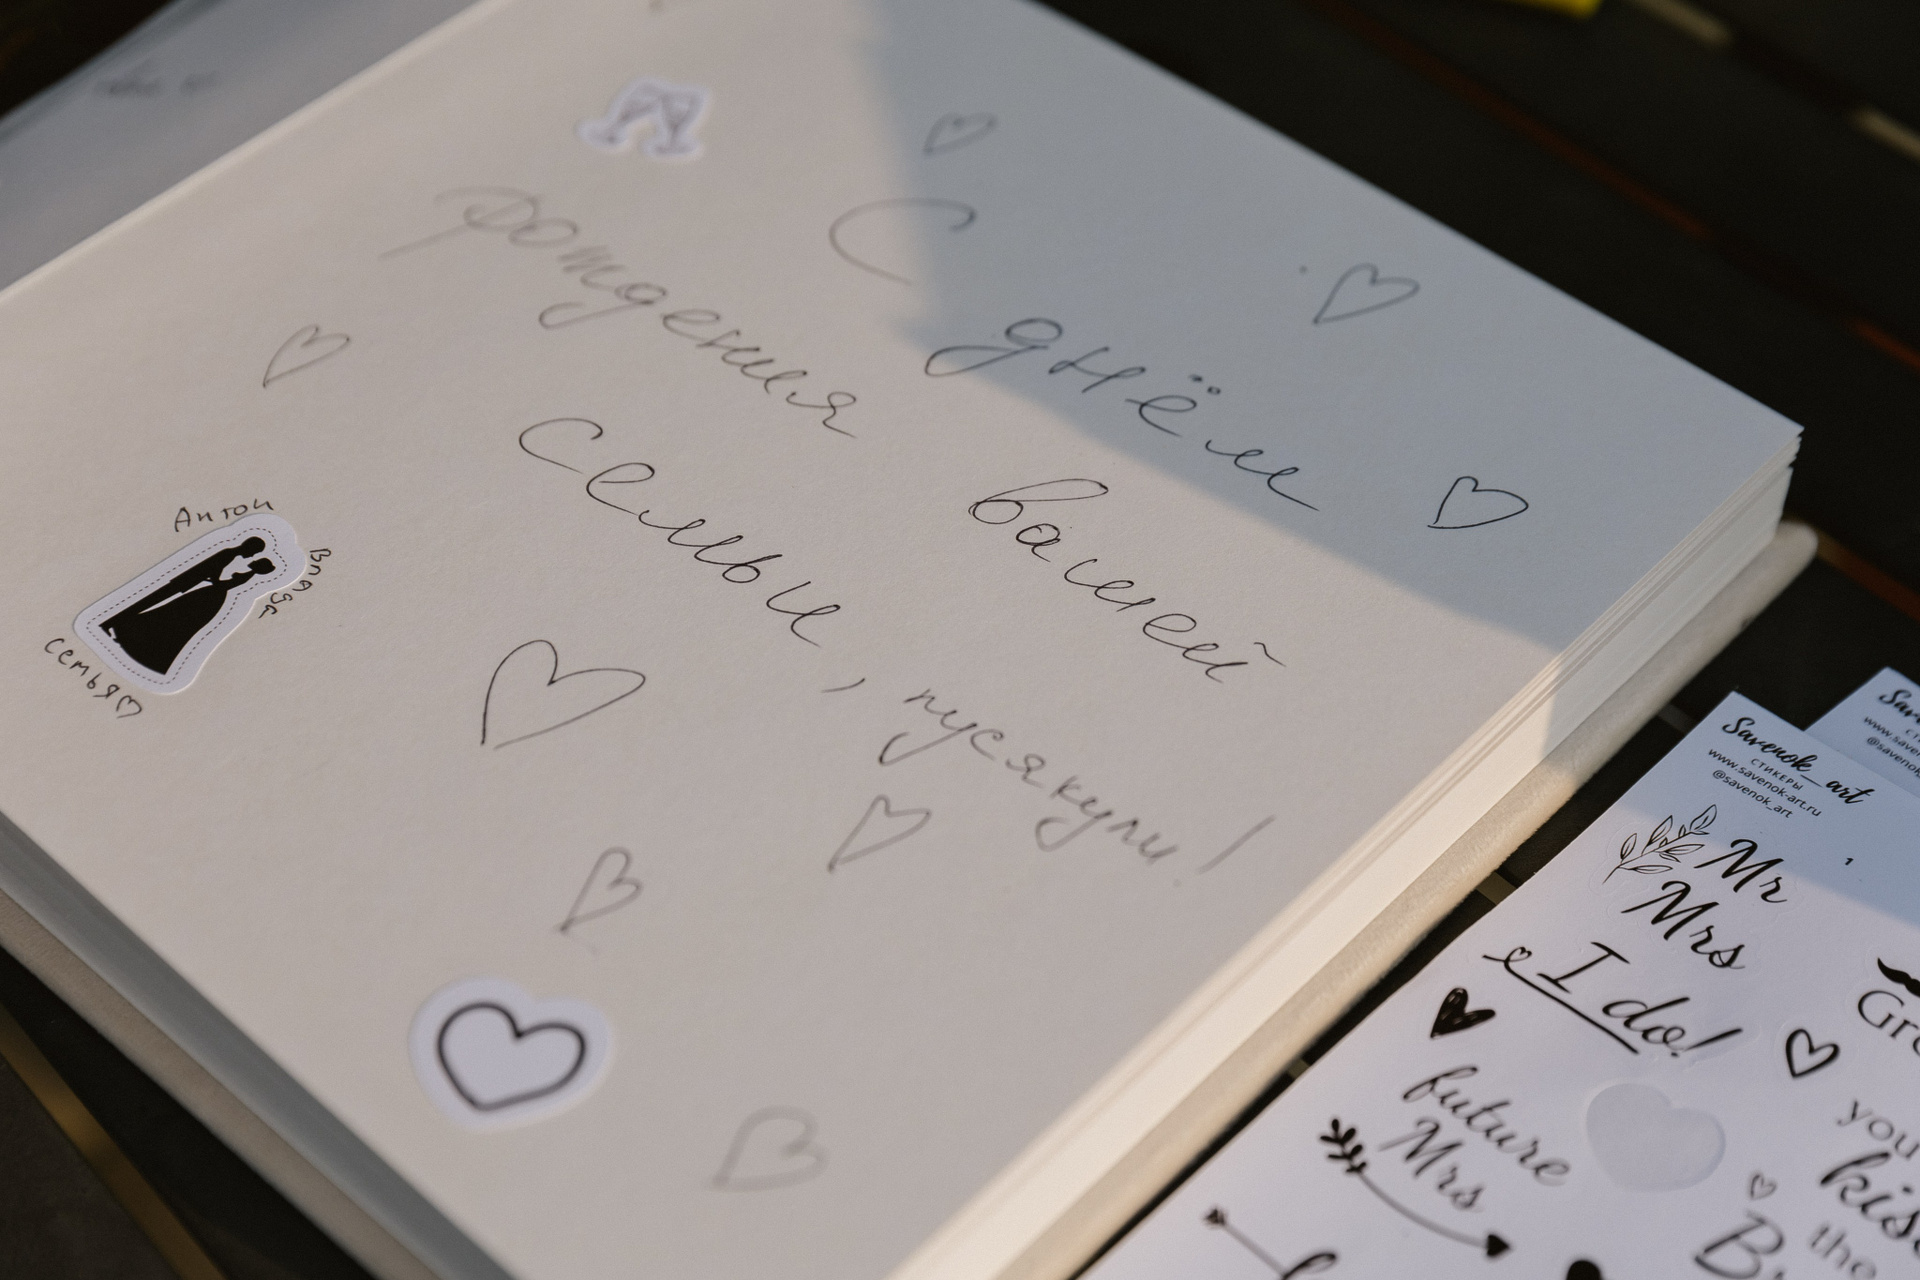 С днём
рождения вашей
семьи, пусякули!
Антон
Владя
семья
Savenok_art
СТИКЕРЫ
www.savenok-art.ru
@savenok_art
Mr
Mrs
I do!
future
Mrs
you
the